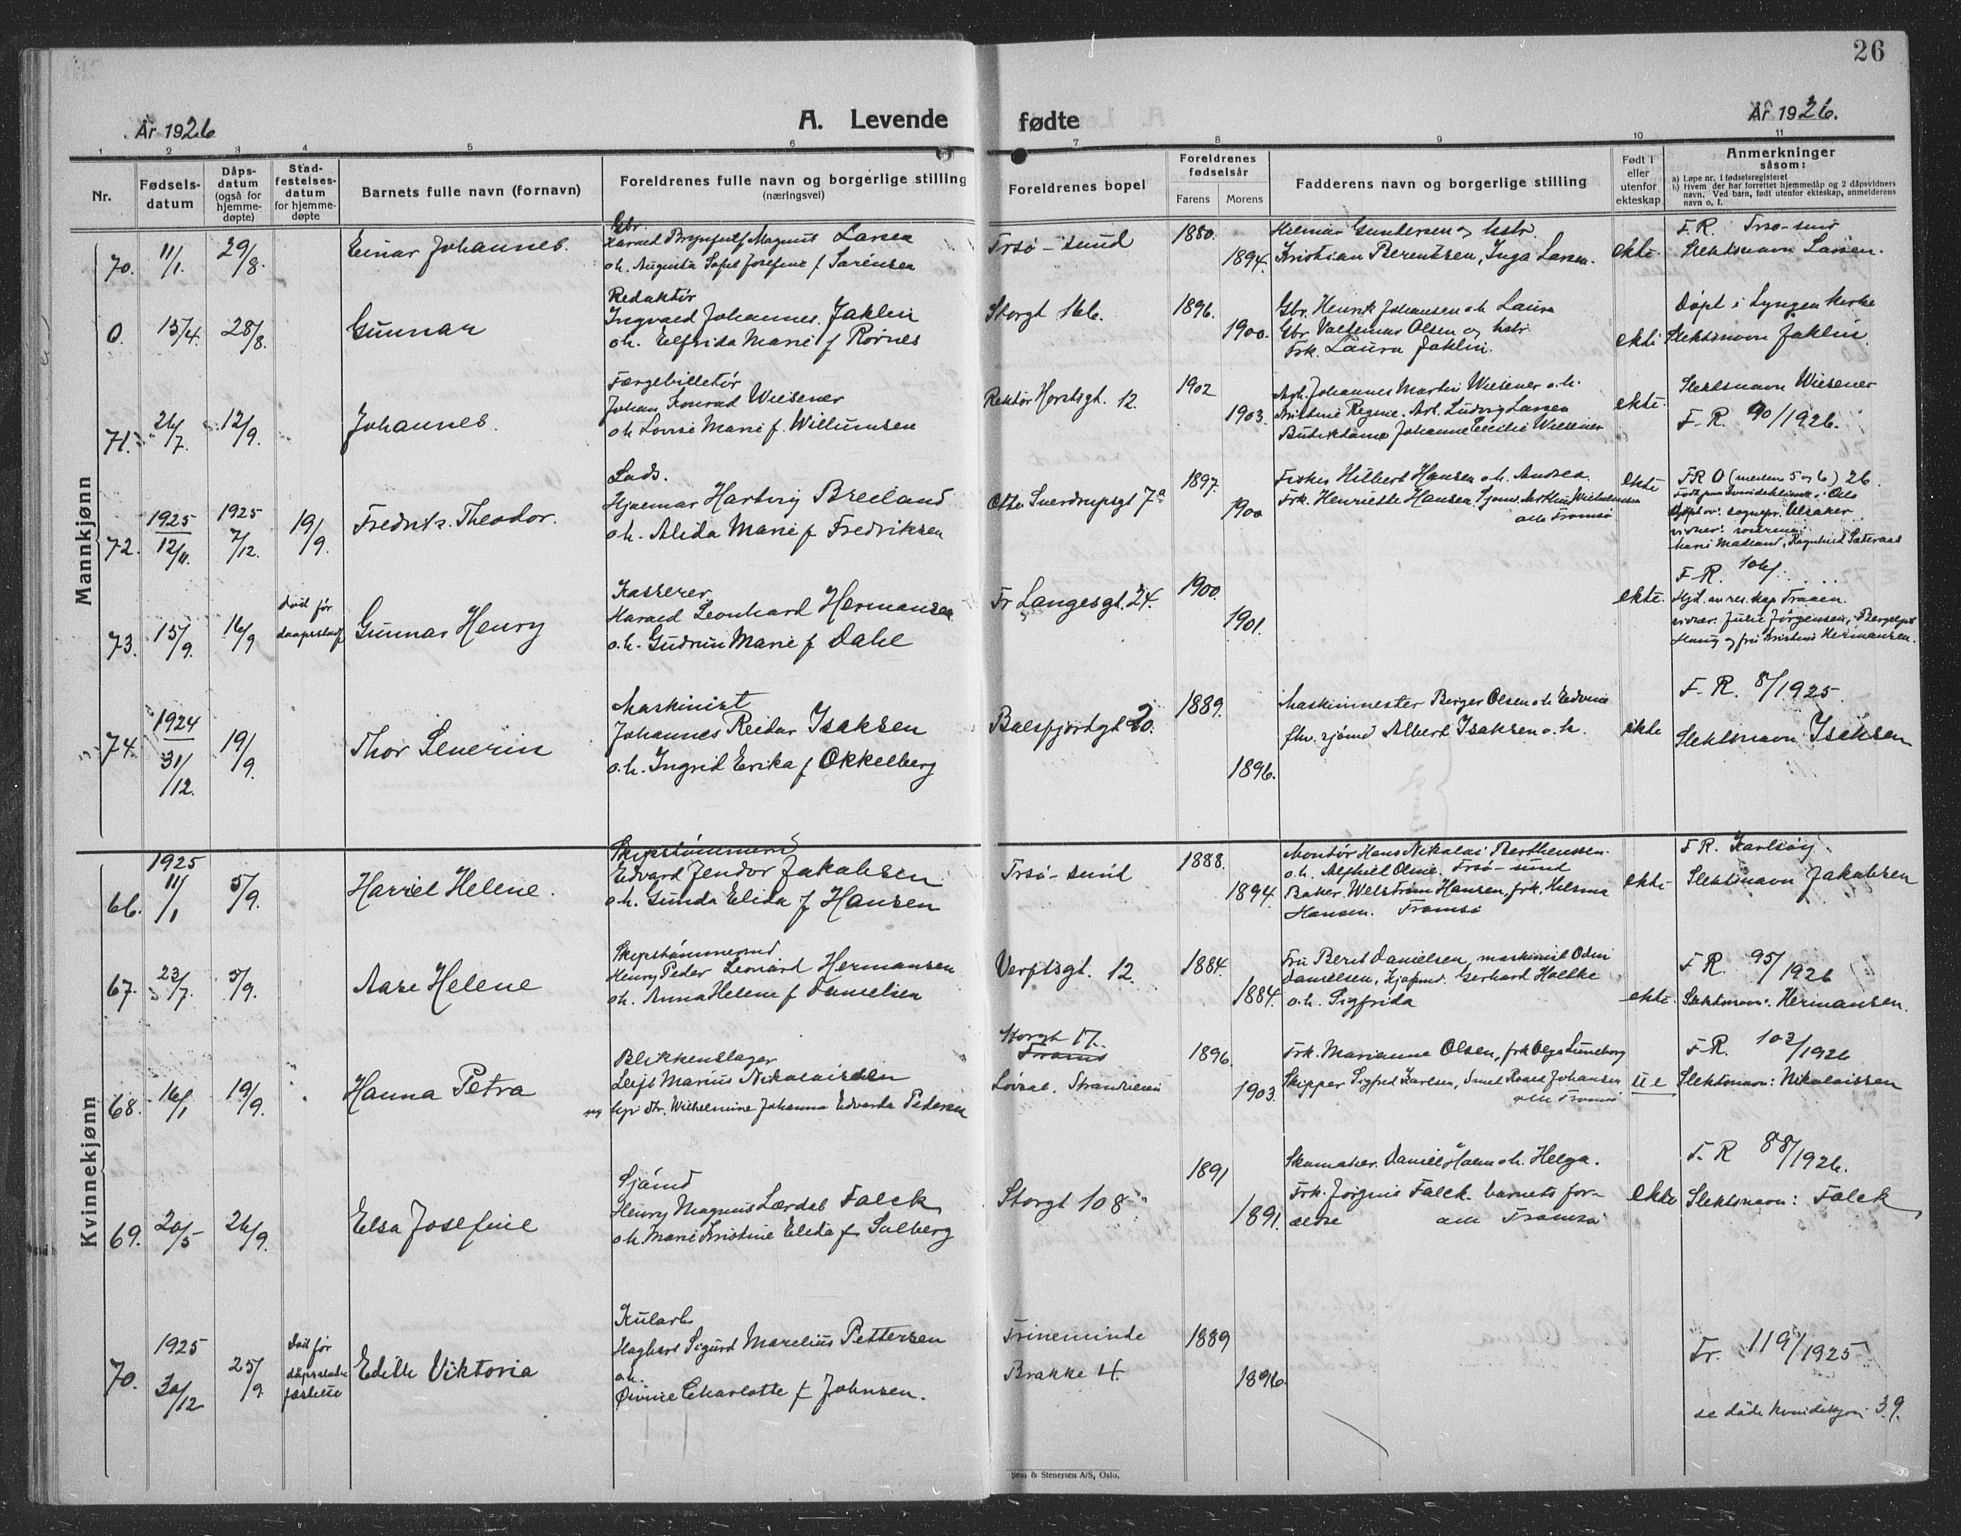 26
År 1926
A. Levende
fødte
År 1926.
1 2 3 4 5 6 7 8 9 10 11
Nr.
Fødsels-
datum
Dåps-
datum
(også for
hjemme-
døpte)
Stad-
festelses-
datum
for hjemme-
døpte
Barnets fulle navn (fornavn)
Foreldrenes fulle navn og borgerlige stilling
(næringsvei)
Foreldrenes bopel
Foreldrenes
fødselsår
Farens Morens
Fadderens navn og borgerlige stilling
Født i
eller
utenfor
ekteskap
Anmerkninger
såsom:
a) Løpe nr. i fødselsregisteret
b) Hvem der har forrettet hjemmedåp og 2 dåpsvidners
navn. Ved barn, født utenfor ekteskap, anmelderens
navn o. l.
Mannkjønn
70. 11/1. 29/8. Einar Johannes.
Gbr.
Harald Brynjulf Magnus Larsen
o.h. Augusta Sofie Josefine f Sørensen
Trsø-sund
1880.
1894.
Hilmar Gundersen og hstr.
Kristian Berentsen, Inga Larsen.
ekte
F.R. Trsø-sund
Slektsnavn Larsen.
0. 15/4. 28/8. Gunnar
Redaktør
Ingvald Johannes Jaklin
o.h. Elfrida Marie f Rørnes
Storgt 166.
1896.
1900.
Gbr. Henrik Johansen o.h. Laura
Gbr. Valdemar Olsen og hstr.
Frk. Laura Jaklin.
ekte
Døpt i Lyngen kirke
Slektsnavn Jaklin.
71. 26/7. 12/9. Johannes.
Færgebilletør
Johan Konrad Wiesener
o.h. Lovise Marie f. Willumsen
Rektor Horstsgt. 12.
1902
1903.
Arb. Johannes Martin Wiesener o.h.
Kristine Regine. Arb. Ludvig Larsen
Butikdame Johanne Cecilie Wiesener
ekte
Slektsnavn Wiesener
F.R. 90/1926.
72. 1925 12/11. 1925 7/12. 19/9. Fredrik Theodor.
Lods.
Hjalmar Hartvig Breiland
o.h. Alida Marie f Fredriksen
Otto Sverdrupsgt 7a
1897.
1900
Fisker Hilbert Hansen o.h. Andrea
Frk. Henriette Hansen, Sjømd. Arthur Wilhelmsen
alle Tromsø
ekte
F.R. 0 (mellem 5 og 6) 26.
Født paa Kvindeklinik i Oslo
Døpt av: sognepr. Ulsaker
vidner: søstrene:
Marie Madland, Ragnhild Sæteraas
73. 15/9. 16/9 død før daapsstadf. Gunnar Henry
Kasserer
Harald Leonhard Hermansen
o.h. Gudrun Marie f Dahl
Fr Langesgt. 24.
1900.
1901.
ekte.
F.R. 106/
Hjd. av res. kap Traaen.
vidner. Julie Jørgensen, Bergljot
Haug og fru Kristine Hermansen.
74. 1924 31/12. 19/9. Thor Severin
Maskinist
Johannes Reidar Isaksen
o.h. Ingrid Erika f Okkelberg
Balsfjordgt 20.
1889.
1896.
Maskinmester Berger Olsen o.h. Edvine
fhv. sjømd Albert Isaksen o.h.
ekte
F.R. 8/1925
Slektsnavn Isaksen
Kvinnekjønn
66. 1925 11/1 5/9. Harriet Helene.
Skipstømmerm
Edvard Jendor Jakobsen
o.h. Gunda Elida f Hansen
Trsø-sund
1888.
1894.
Montør Hans Nikolai Berthenssen
o.h. Alfhild Oline. Trsø-sund
Baker Welstrøm Hansen, frk. Hilma
Hansen. Tromsø
ekte
F.R. Karlsøy
Slektsnavn Jakobsen
67. 23/7. 5/9. Aase Helene
Skipstømmermd
Henry Peder Leonard Hermansen
o.h. Anna Helene f Danielsen
Verftsgt. 12.
1884.
1884.
Fru Berit Danielsen, maskinist Odin
Danielsen, Kjøpmd. Gerhard Holtke
o.h. Sigfrida
ekte.
F.R. 95/1926
Slektsnavn: Hermansen.
68. 16/1 19/9. Hanna Petra
Blikkenslager
Leif Marius Nikolaissen
og Wilhelmine Johanna Edvarda Pedersen
Storgt 17.
Tromsø
Strandveien
1896.
1903.
Frk. Marianna Olsen, frk Olga Lundborg
Skipper Sigfred Karlsen, Roald Johansen
alle Tromsø
ue
F.R. 102/1926
Slektsnavn: Nikolaissen
69. 20/5 26/9. Elsa Josefine
Sjømd
Henry Magnus Lærdal Falck
o.h. Marie Kristine Elida f Solberg
Storgt 108
1891
1891.
Skomaker. Daniel Holm o.h. Helga.
Frk. Jørgine Falck. barnets for-
eldre alle Tromsø
ekte
F.R 88/1926.
Slektsnavn: Falck
70. 1925 30/12 25/9. Død før daapsstadfestelse Edith Viktoria
Kularb
Hagbart Sigurd Marelius Pettersen
o.h.
Øivine Charlotte f Johnsen.
Trineminde
Brakke 4.
1889
1896.
Fr. 119/1925
se døde kvindekjøn 39.
Sem & Stenersen A/S, Oslo.